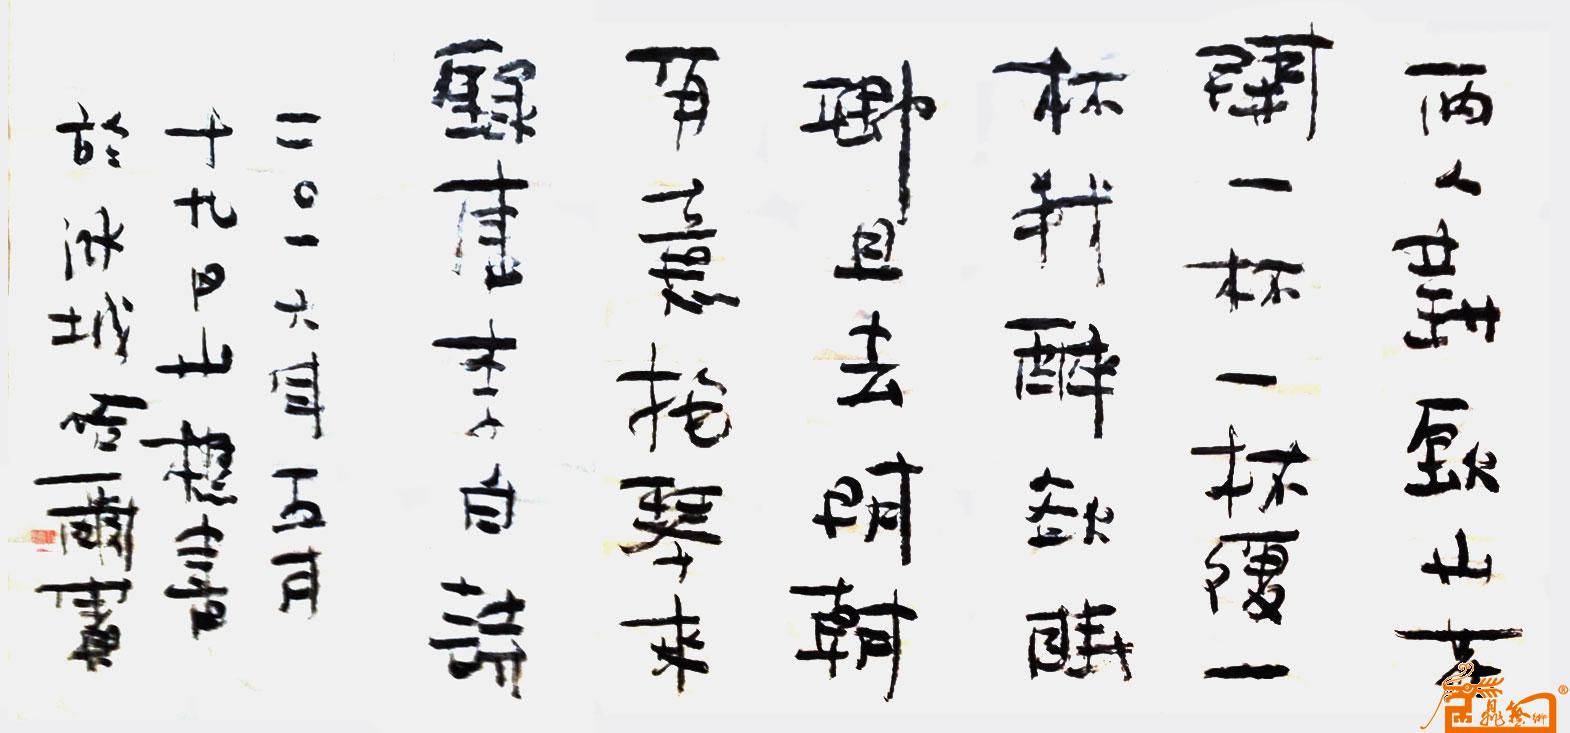 兩人對飲山花
開一杯一杯復一
杯我醉欲眠
卿且去明朝
有意抱琴來
錄唐李白詩
二〇一六年五月
十九日山書
於冰城哈爾濱